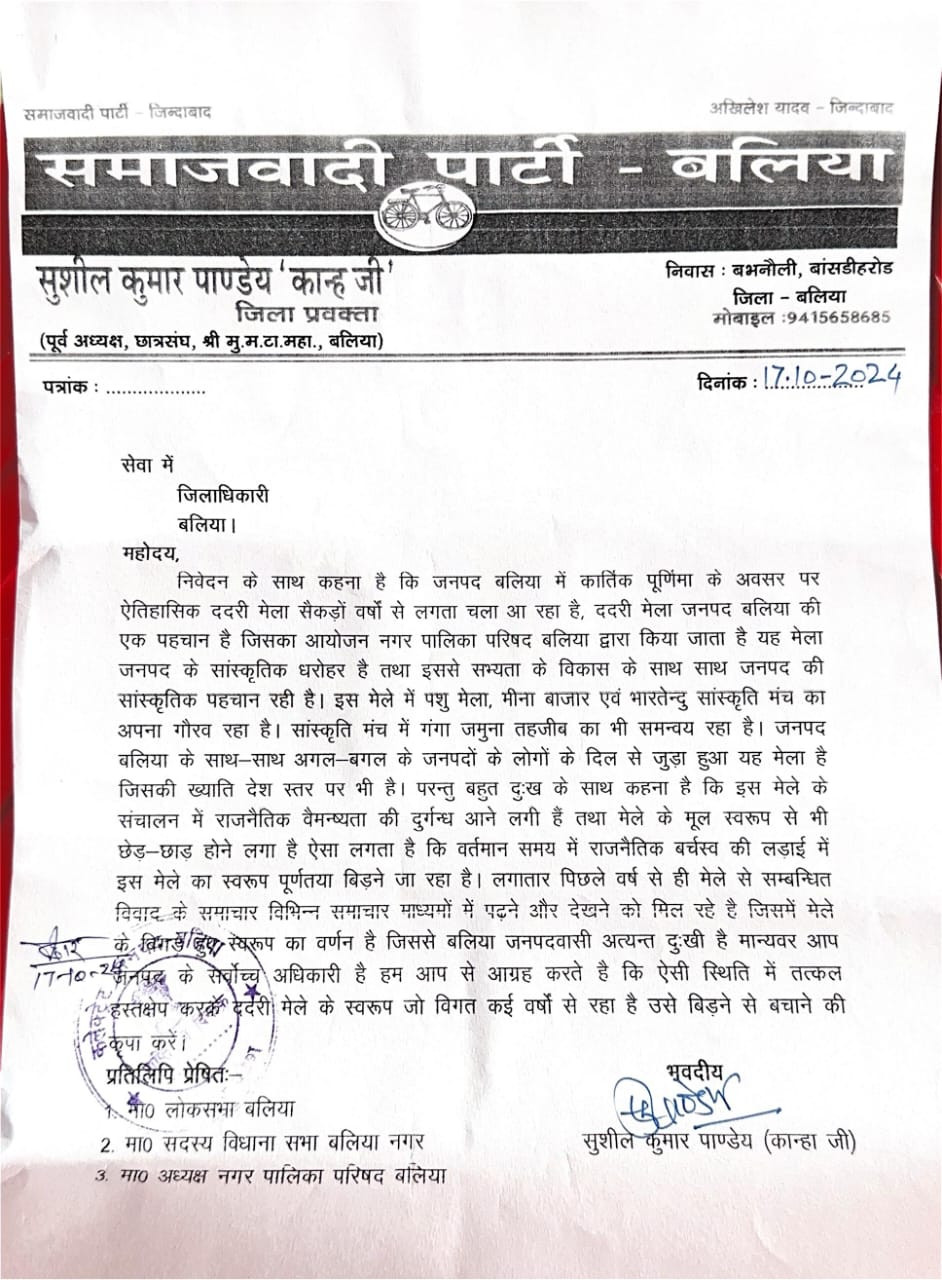 समाजवादी पार्टी - जिन्दाबाद
अखिलेश यादव - जिन्दाबाद
समाजवादी पार्टी - बलिया
सुशील कुमार पाण्डेय 'कान्ह जी'
जिला प्रवक्ता
(पूर्व अध्यक्ष, छात्रसंघ, श्री मु.म.टा.महा., बलिया)
निवास : बभनौली, बांसडीहरोड
जिला - बलिया
मोबाइल :9415658685
पत्रांक : ...................
दिनांक : 17.10-2024
सेवा में
जिलाधिकारी
बलिया।
महोदय,
निवेदन के साथ कहना है कि जनपद बलिया में कार्तिक पूर्णिमा के अवसर पर
ऐतिहासिक ददरी मेला सैकड़ों वर्षो से लगता चला आ रहा है, ददरी मेला जनपद बलिया की
एक पहचान है जिसका आयोजन नगर पालिका परिषद बलिया द्वारा किया जाता है यह मेला
जनपद के सांस्कृतिक धरोहर है तथा इससे सभ्यता के विकास के साथ साथ जनपद की
सांस्कृतिक पहचान रही है। इस मेले में पशु मेला, मीना बाजार एवं भारतेन्दु सांस्कृति मंच का
अपना गौरव रहा है। सांस्कृति मंच में गंगा जमुना तहजीब का भी समन्वय रहा है। जनपद
बलिया के साथ–साथ अगल–बगल के जनपदों के लोगों के दिल से जुड़ा हुआ यह मेला है
जिसकी ख्याति देश स्तर पर भी है। परन्तु बहुत दुःख के साथ कहना है कि इस मेले के
संचालन में राजनैतिक वैमन्ष्यता की दुर्गन्ध आने लगी हैं तथा मेले के मूल स्वरूप से भी
छेड़–छाड़ होने लगा है ऐसा लगता है कि वर्तमान समय में राजनैतिक बर्चस्व की लड़ाई में
इस मेले का स्वरूप पूर्णतया बिड़ने जा रहा है। लगातार पिछले वर्ष से ही मेले से सम्बन्धित
विवाद के समाचार विभिन्न समाचार माध्यमों में पढ़ने और देखने को मिल रहे है जिसमें मेले
के विगड़े हुए स्वरूप का वर्णन है जिससे बलिया जनपदवासी अत्यन्त दुःखी है मान्यवर आप
जनपद के सर्वोच्च अधिकारी है हम आप से आग्रह करते है कि ऐसी स्थिति में तत्कल
हस्तक्षेप करके ददरी मेले के स्वरूप जो विगत कई वर्षो से रहा है उसे बिड़ने से बचाने की
कृपा करें।
17-10-24
प्रतिलिपि प्रेषितः–
1. मा0 लोकसभा बलिया
2. मा0 सदस्य विधाना सभा बलिया नगर
3. मा0 अध्यक्ष नगर पालिका परिषद बलिया
भवदीय
सुशील कुमार पाण्डेय (कान्हा जी)